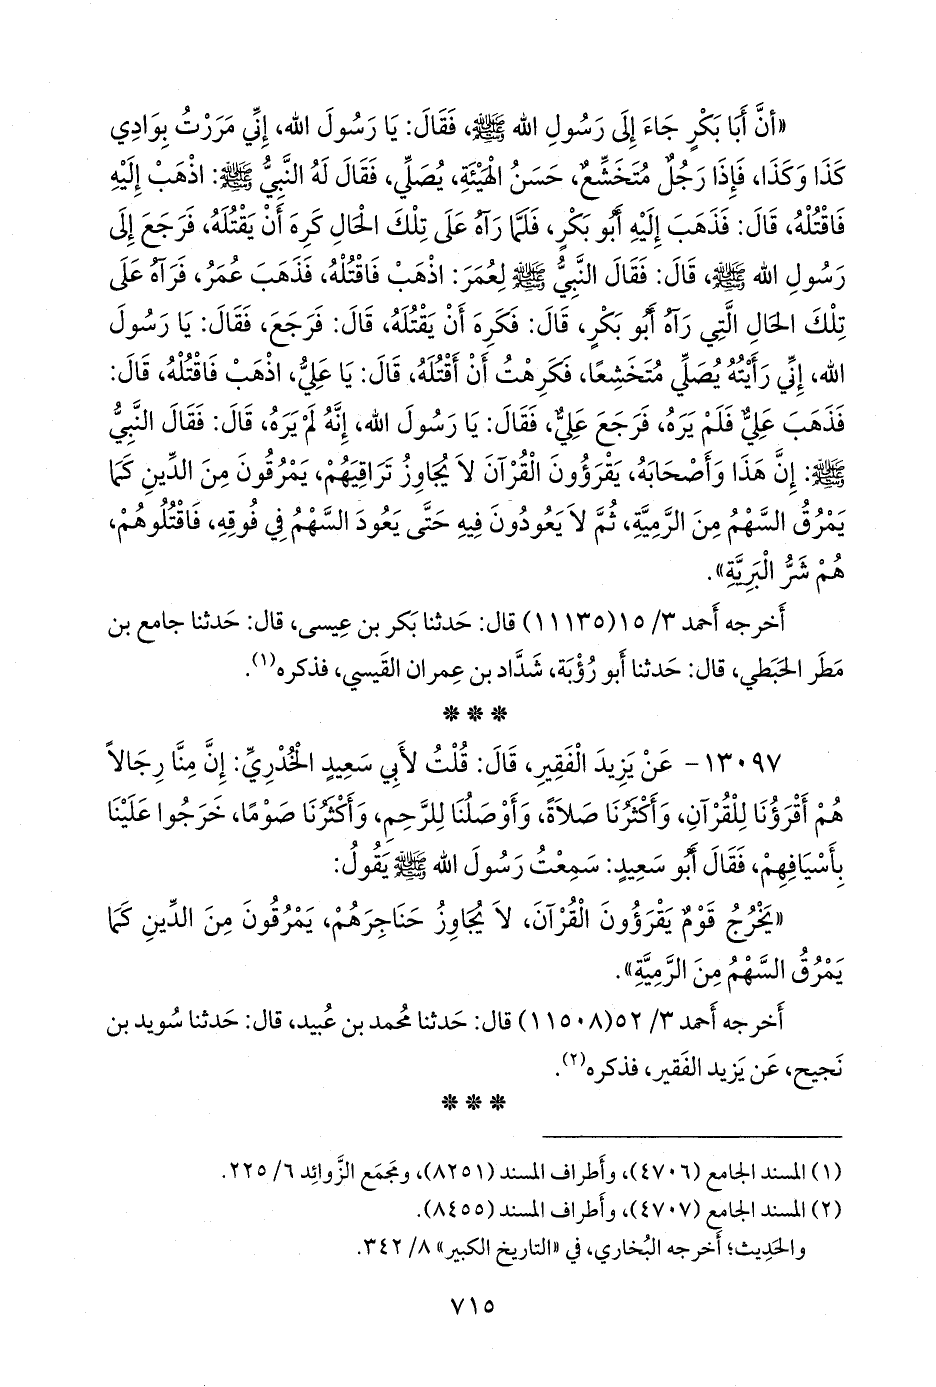 «أنَّ أَبَا بَكْرٍ جَاءَ إِلَى رَسُولِ الله ﷺ، فَقَالَ: يَا رَسُولَ الله، إِنِّي مَرَرْتُ بِوَادِي
كَذَا وَكَذَا، فَإِذَا رَجُلٌ مُتَخَشِّعٌ، حَسَنُ الْهَيْئَةِ، يُصَلِّي، فَقَالَ لَهُ النَّبِيُّ ﷺ: اذْهَبْ إِلَيْهِ
فَاقْتُلْهُ، قَالَ: فَذَهَبَ إِلَيْهِ أَبُو بَكْرٍ، فَلَمَّا رَآهُ عَلَى تِلْكَ الْحَالِ كَرِهَ أَنْ يَقْتُلَهُ، فَرَجَعَ إِلَى
رَسُولِ الله ﷺ، قَالَ: فَقَالَ النَّبِيُّ ﷺ لِعُمَرَ: اذْهَبْ فَاقْتُلْهُ، فَذَهَبَ عُمَرُ، فَرَآهُ عَلَى
تِلْكَ الْحَالِ الَّتِي رَآهُ أَبُو بَكْرٍ، قَالَ: فَكَرِهَ أَنْ يَقْتُلَهُ، قَالَ: فَرَجَعَ، فَقَالَ: يَا رَسُولَ
الله، إِنِّي رَأَيْتُهُ يُصَلِّي مُتَخَشِّعًا، فَكَرِهْتُ أَنْ أَقْتُلَهُ، قَالَ: يَا عَلِيُّ، اذْهَبْ فَاقْتُلْهُ، قَالَ:
فَذَهَبَ عَلِيٌّ فَلَمْ يَرَهُ، فَرَجَعَ عَلِيٌّ، فَقَالَ: يَا رَسُولَ الله، إِنَّهُ لَمْ يَرَهُ، قَالَ: فَقَالَ النَّبِيُّ
ﷺ: إِنَّ هَذَا وَأَصْحَابَهُ، يَقْرَؤُونَ الْقُرْآنَ لاَ يُجَاوِزُ تَرَاقِيَهُمْ، يَمْرُقُونَ مِنَ الدِّينِ كَمَا
يَمْرُقُ السَّهْمُ مِنَ الرَّمِيَّةِ، ثُمَّ لاَ يَعُودُونَ فِيهِ حَتَّى يَعُودَ السَّهْمُ فِي فُوقِهِ، فَاقْتُلُوهُمْ،
هُمْ شَرُّ الْبَرِيَّةِ».
أَخرجه أَحمد ٣/ ١٥(١١١٣٥) قال: حَدثنا بَكر بن عِيسى، قال: حَدثنا جامع بن
مَطَر الحَبَطي، قال: حَدثنا أَبو رُؤْبَة، شَدَّاد بن عِمران القَيسي، فذكره(١).
* * *
١٣٠٩٧- عَنْ يَزِيدَ الْفَقِيرِ، قَالَ: قُلْتُ لأَبِي سَعِيدٍ الْخُدْرِيِّ: إِنَّ مِنَّا رِجَالاً
هُمْ أَقْرَؤُنَا لِلْقُرْآنِ، وَأَكْثَرُنَا صَلاَةً، وَأَوْصَلُنَا لِلرَّحِمِ، وَأَكْثَرُنَا صَوْمًا، خَرَجُوا عَلَيْنَا
بِأَسْيَافِهِمْ، فَقَالَ أَبُو سَعِيدٍ: سَمِعْتُ رَسُولَ الله ﷺ يَقُولُ:
«يَخْرُجُ قَوْمٌ يَقْرَؤُونَ الْقُرْآنَ، لاَ يُجَاوِزُ حَنَاجِرَهُمْ، يَمْرُقُونَ مِنَ الدِّينِ كَمَا
يَمْرُقُ السَّهْمُ مِنَ الرَّمِيَّةِ».
أَخرجه أَحمد ٣/ ٥٢(١١٥٠٨) قال: حَدثنا مُحمد بن عُبيد، قال: حَدثنا سُويد بن
نَجيح، عَن يَزيد الفَقير، فذكره(٢).
* * *
(١) المسند الجامع (٤٧٠٦)، وأَطراف المسند (٨٢٥١)، ومَجمَع الزَّوائِد ٦/ ٢٢٥.
(٢) المسند الجامع (٤٧٠٧)، وأَطراف المسند (٨٤٥٥).
والحَدِيث؛ أَخرجه البُخاري، في «التاريخ الكبير» ٨/ ٣٤٢.
٧١٥